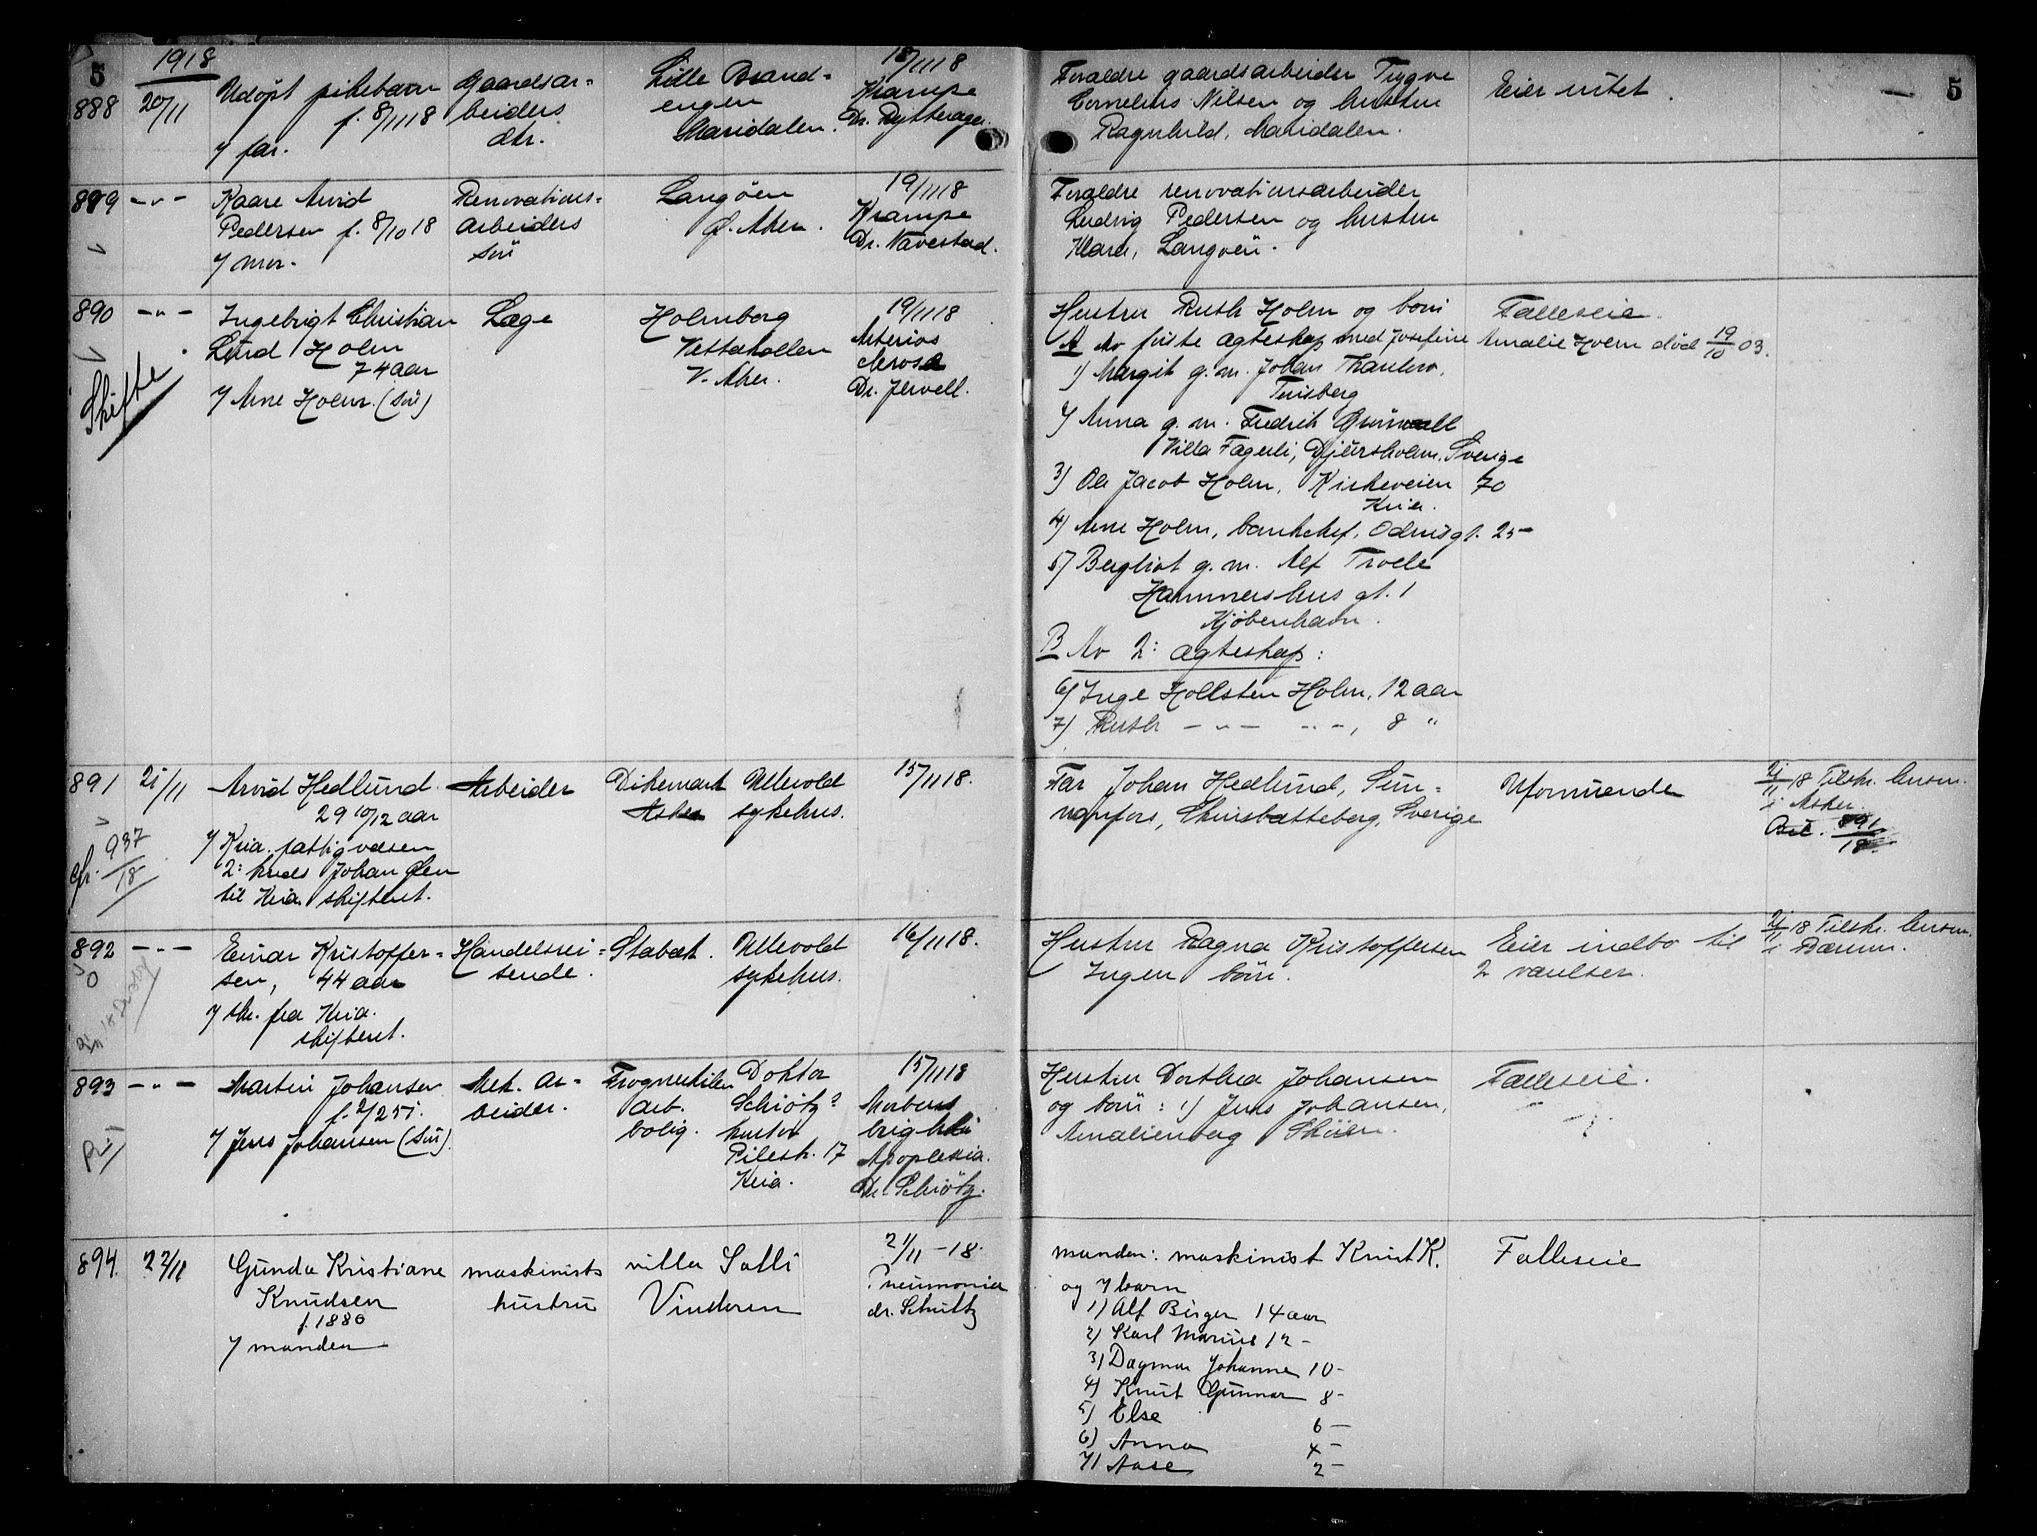 5
1918
888
20/11
Udöpt pikebarn
f. 8/11 18
/ far.
Gaardsar=
beiders
dtr.
Lille Brand=
engen
Maridalen.
18/11 18
Krampe
Dr. Rytterager.
Foraldre gaardsarbeider Trygve
Cornelius Nilsen og hustru
Ragnhild, Maridalen.
Eier intet.
—
5
889
-"-
Kaare Arvid
Pedersen f. 8/10 18
/ mor.
Renovations=
arbeiders
sön
Langöen
Ø. Aker.
19/11 18
Krampe
Dr. Navestad.
Foraldre renovationsarbeider
Ludvig Pedersen og hustru
Klara, Langöen.
890
-"-
Skifte.
Ingebrigt Christian
Lund Holm
74 aar
/ Arne Holm. (sön)
Læge
Holmborg
Vettakollen
V. Aker.
19/11 18
Arterios
clerose
Dr. Jervell.
Hustru Ruth Holm og born
Falleseie.
A Av förste ægteskap med Josefine Amalie Holm död 19/10 03.
1) Margit g. m. Johan
Tönsberg
2) Anna g. m. Fredrik Grönwall
Villa Fagerli, Djursholm, Sverige
3) Ole Jacob Holm, Kirkeveien 70
Kria.
4) Arne Holm, bankchef, Odinsgt. 25
5) Bergliot g. m. Alf Troele
Hammershus gt. 1
Kjöbenhavn.
B Av 2: ægteskap:
6) Inge Hollsten Holm, 12 aar
7) Ruth -"- -"-, 8 "
891
21/11
cfr. 937/18
Arvid Hedlund
29 10/12 aar
/ Kria. fattigvæsen
2: hvels Johan Olen
til Kria skifteret.
Arbeider
Dikemark
Asker
Ullevold
sykehus.
15/11 18.
Far Johan Hedlund, Sun=
nanfors, Skinskatteberg, Sverige
Uformuende
21/11 18 Tilskr. lensm.
i Asker.
891/18
892
-"-
0
Einar Kristoffer=
sen, 44 aar
/ skr. fra Kria.
skifteret.
Handelsrei=
sende.
Stabæk.
Ullevold
sykehus.
16/11 18.
Hustru Ragna Kristoffersen
Ingen börn.
Eier indbo til
2 værelser.
21/11 18 Tilskr. lensm.
i Bærum.
893
-"-
Martin Johansen
f. 2/2 51.
/ Jens Johansen (sön).
Mek. ar=
beider.
Frognerkilen
arb.
bolig.
Doktor
Schiötz?
kontor
Pilestr. 17
Kria.
15/11 18
Morbus
brightii
Apoplexia.
Dr. Schiötz.
Hustru Dorthea Johansen
og börn: 1) Jens Johansen,
Amalienborg Sköien.
Falleseie.
894.
22/11
Gunda Kristiane
Knudsen
f. 1886
/ manden
maskinists
hustru
villa Solli
Vinderen
21/11 - 18.
Pneumonia
dr. Schultz
manden: maskinist Knut K.
og 7 barn
1) Alf Birger 14 aar
2) Karl Marius 12 -
3) Dagmar Johanne 10 -
4) Knut Gunnar 8 -
5) Else 6 -
6) Anna 4 -
7) Aase 2 -
Falleseie